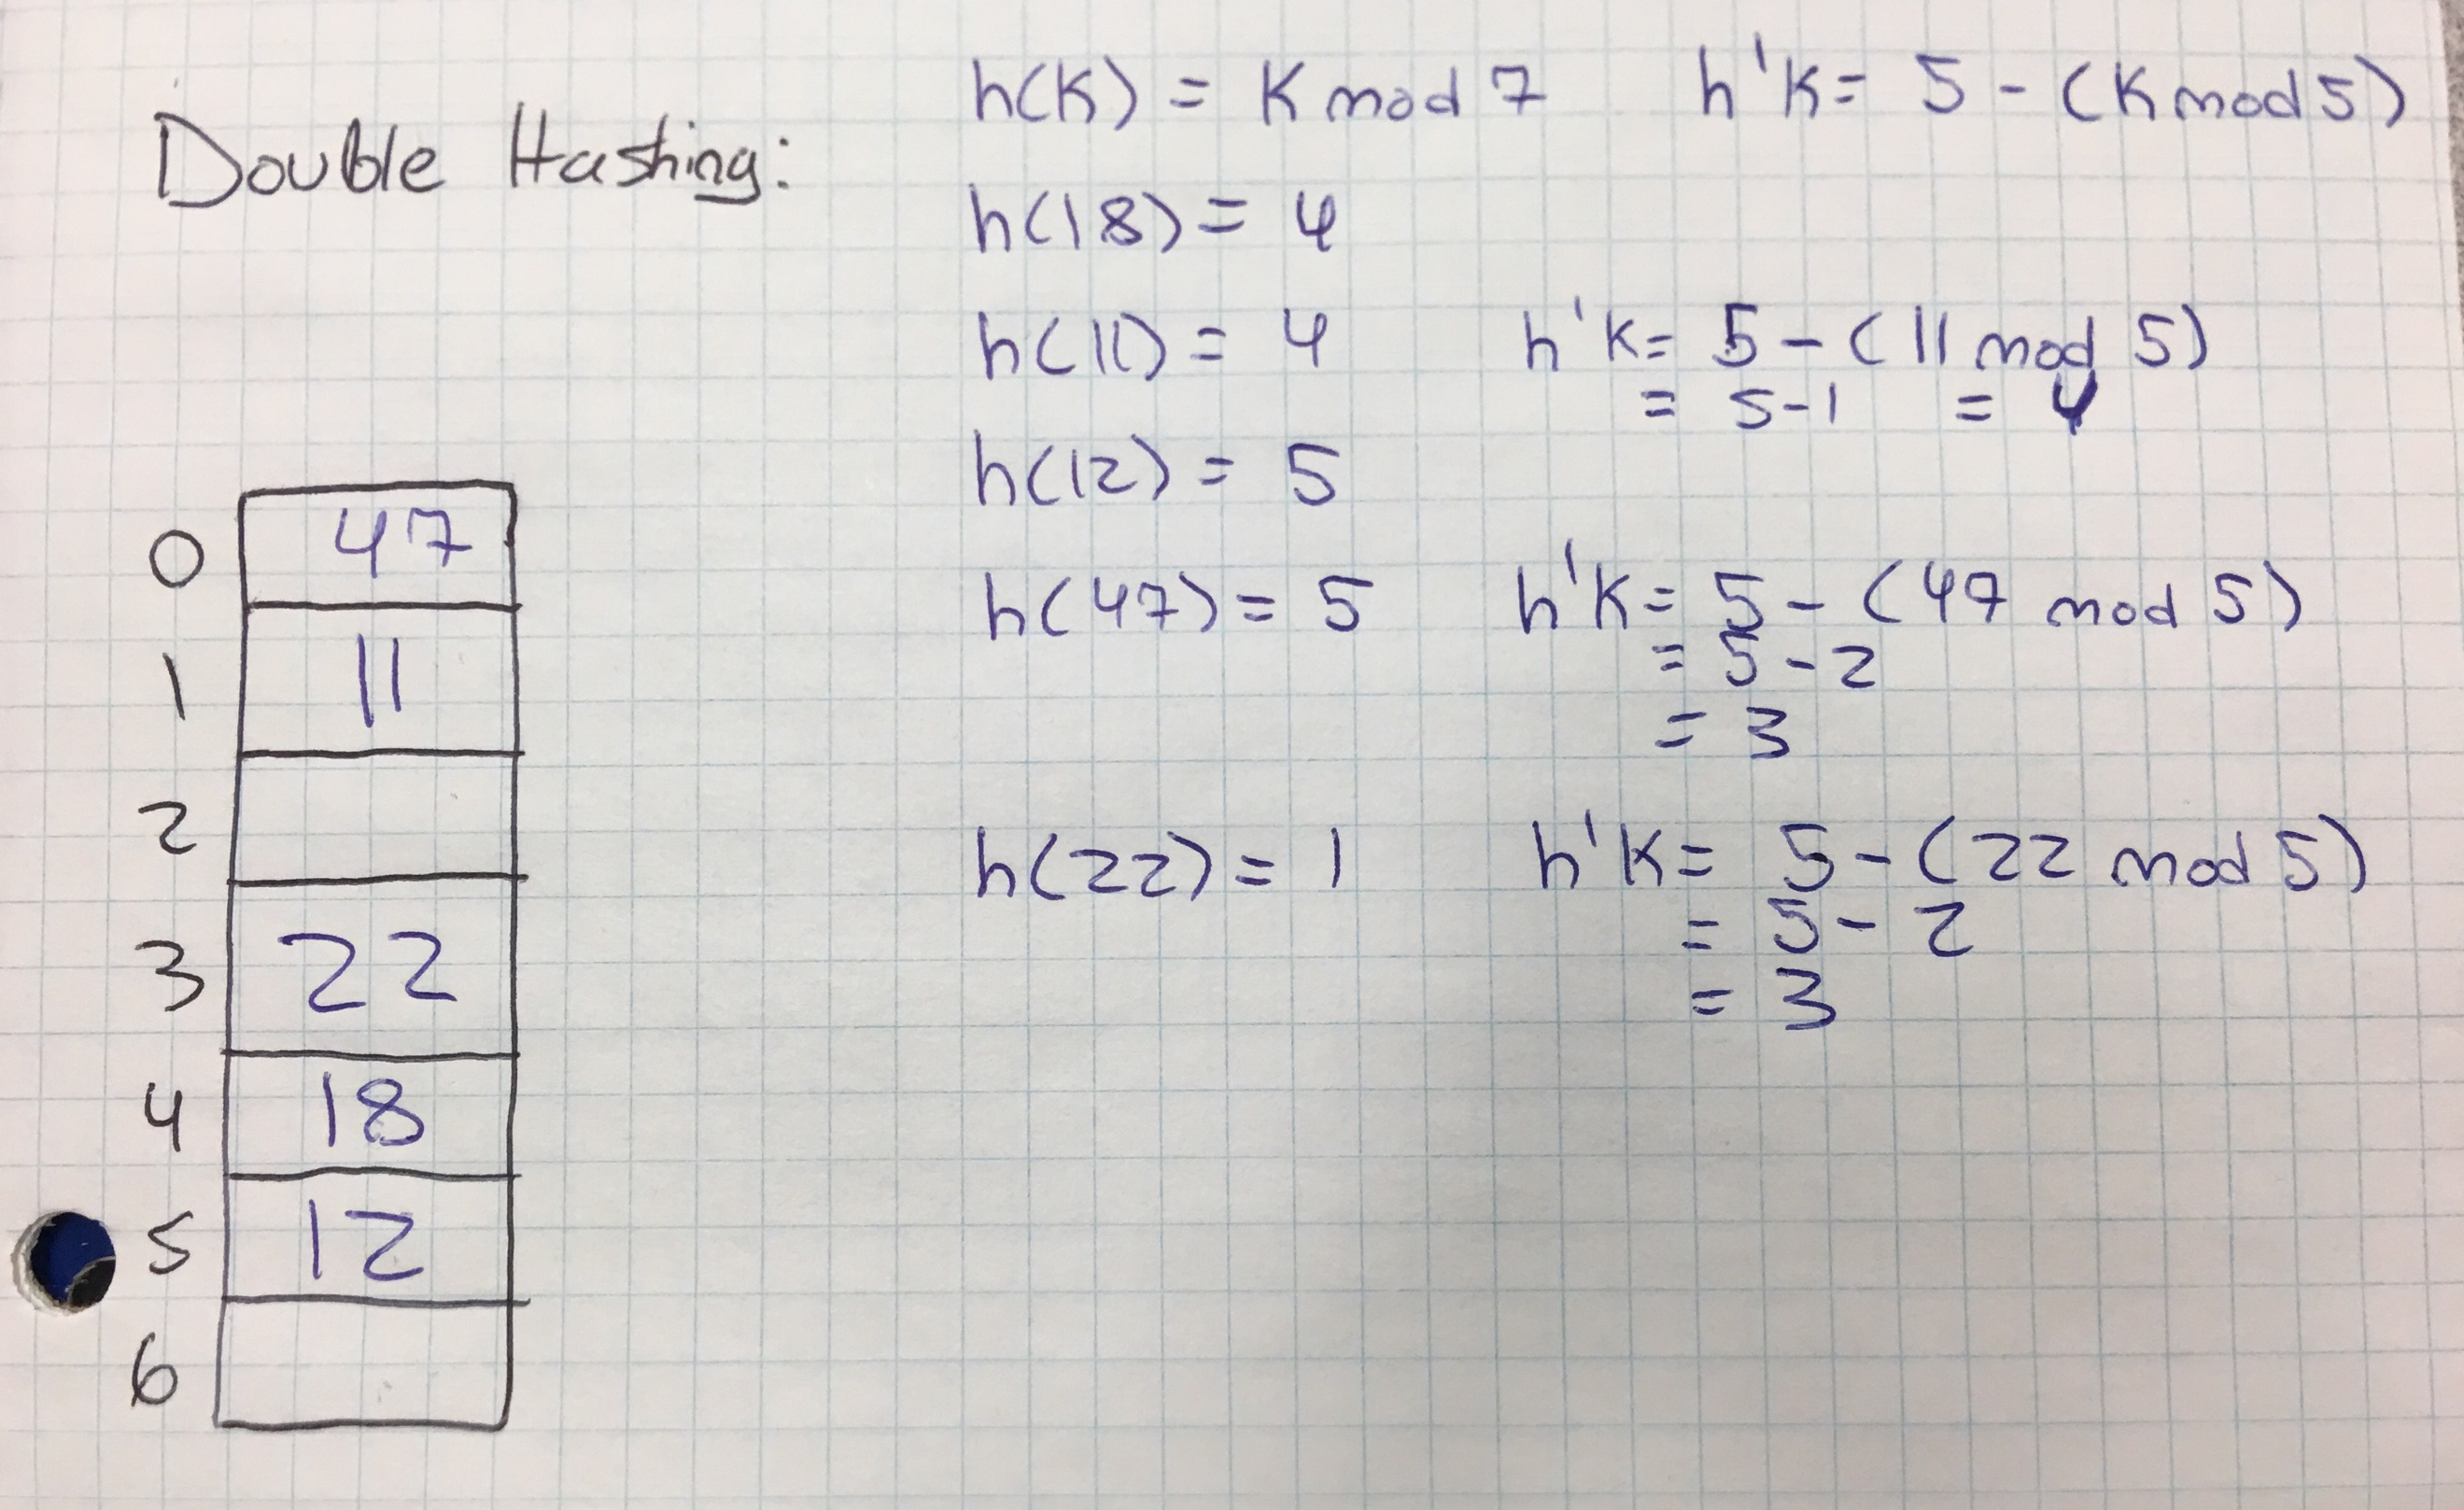 Double Hashing:
h(K) = K mod 7    h'K = 5 - (K mod 5)
h(18) = 4
h(11) = 4    h'K = 5 - (11 mod 5)
= 5-1 = 4
h(12) = 5
h(47) = 5    h'K = 5 - (47 mod 5)
= 5 - 2
= 3
h(22) = 1    h'K = 5 - (22 mod 5)
= 5 - 2
= 3
0 47
1 11
2
3 22
4 18
5 12
6